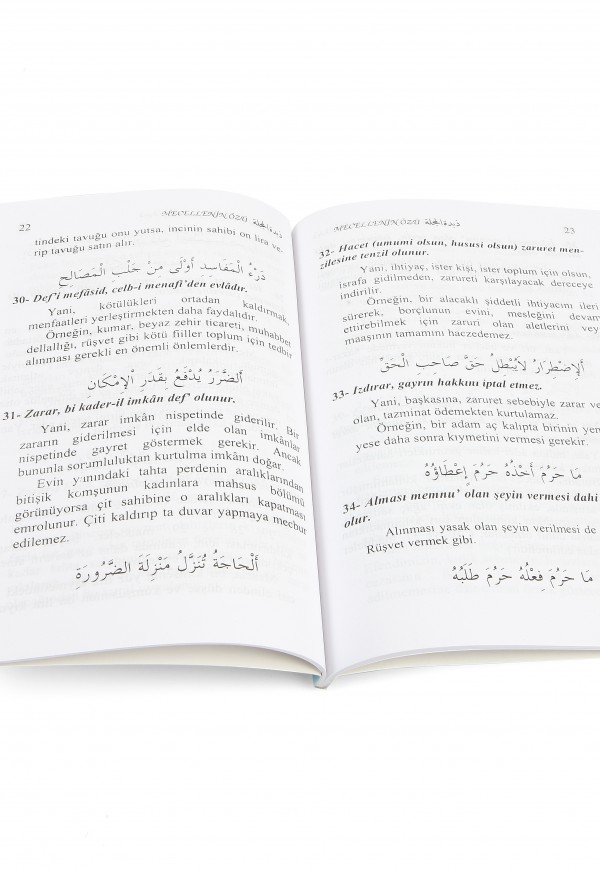 22
MECELLENİN ÖZÜ زبدة المجلة
tindeki tavuğu onu yutsa, incinin sahibi on lira ve-
rip tavuğu satın alır.
دَرْءُ الْمَفَاسِدِ أَوْلَى مِنْ جَلْبِ الْمَصَالِحِ
30- Def'i mefâsid, celb-i menafi'den evlâdır.
Yani, kötülükleri ortadan kaldırmak,
menfaatleri yerleştirmekten daha faydalıdır.
Örneğin, kumar, beyaz zehir ticareti, muhabbet
dellallığı, rüşvet gibi kötü fiiller toplum için tedbir
alınması gerekli en önemli önlemlerdir.
اَلضَّرَرُ يُدْفَعُ بِقَدَرِ الْإِمْكَانِ
31- Zarar, bi kader-il imkân def' olunur.
Yani, zarar imkân nispetinde giderilir. Bir
zararın giderilmesi için elde olan imkânlar
nispetinde gayret göstermek gerekir. Ancak
bununla sorumluluktan kurtulma imkânı doğar.
Evin yanındaki tahta perdenin aralıklarından
bitişik komşunun kadınlara mahsus bölümü
görünüyorsa çit sahibine o aralıkları kapatması
emrolunur. Çiti kaldırıp ta duvar yapmaya mecbur
edilemez.
اَلْحَاجَةُ تُنَزَّلُ مَنْزِلَةَ الضَّرُورَةِ
MECELLENİN ÖZÜ زبدة المجلة
23
32- Hacet (umumi olsun, hususi olsun) zaruret men-
zilesine tenzil olunur.
Yani, ihtiyaç, ister kişi, ister toplum için olsun,
israfa gidilmeden, zaruretı karşılayacak dereceye
indirilir.
Örneğin, bir alacaklı şiddetli ihtiyacını ileri
sürerek, borçlunun evini, mesleğini devam
ettirebilmek için zaruri olan aletlerini vey
maaşının tamamını haczedemez.
اَلْاِضْطِرَارُ لَايُبْطِلُ حَقَّ صَاحِبِ الْحَقِّ
33- Izdırar, gayrın hakkını iptal etmez.
Yani, başkasına, zaruret sebebiyle zarar ve
olan, tazminat ödemekten kurtulamaz.
Örneğin, bir adam aç kalıpta birinin yem
yese daha sonra kıymetini vermesi gerekir.
مَا حَرُمَ أَخْذُهُ حَرُمَ إِعْطَاؤُهُ
34- Alması memnu' olan şeyin vermesi dahi
olur.
Alınması yasak olan şeyin verilmesi de
Rüşvet vermek gibi.
مَا حَرُمَ فِعْلُهُ حَرُمَ طَلَبُهُ